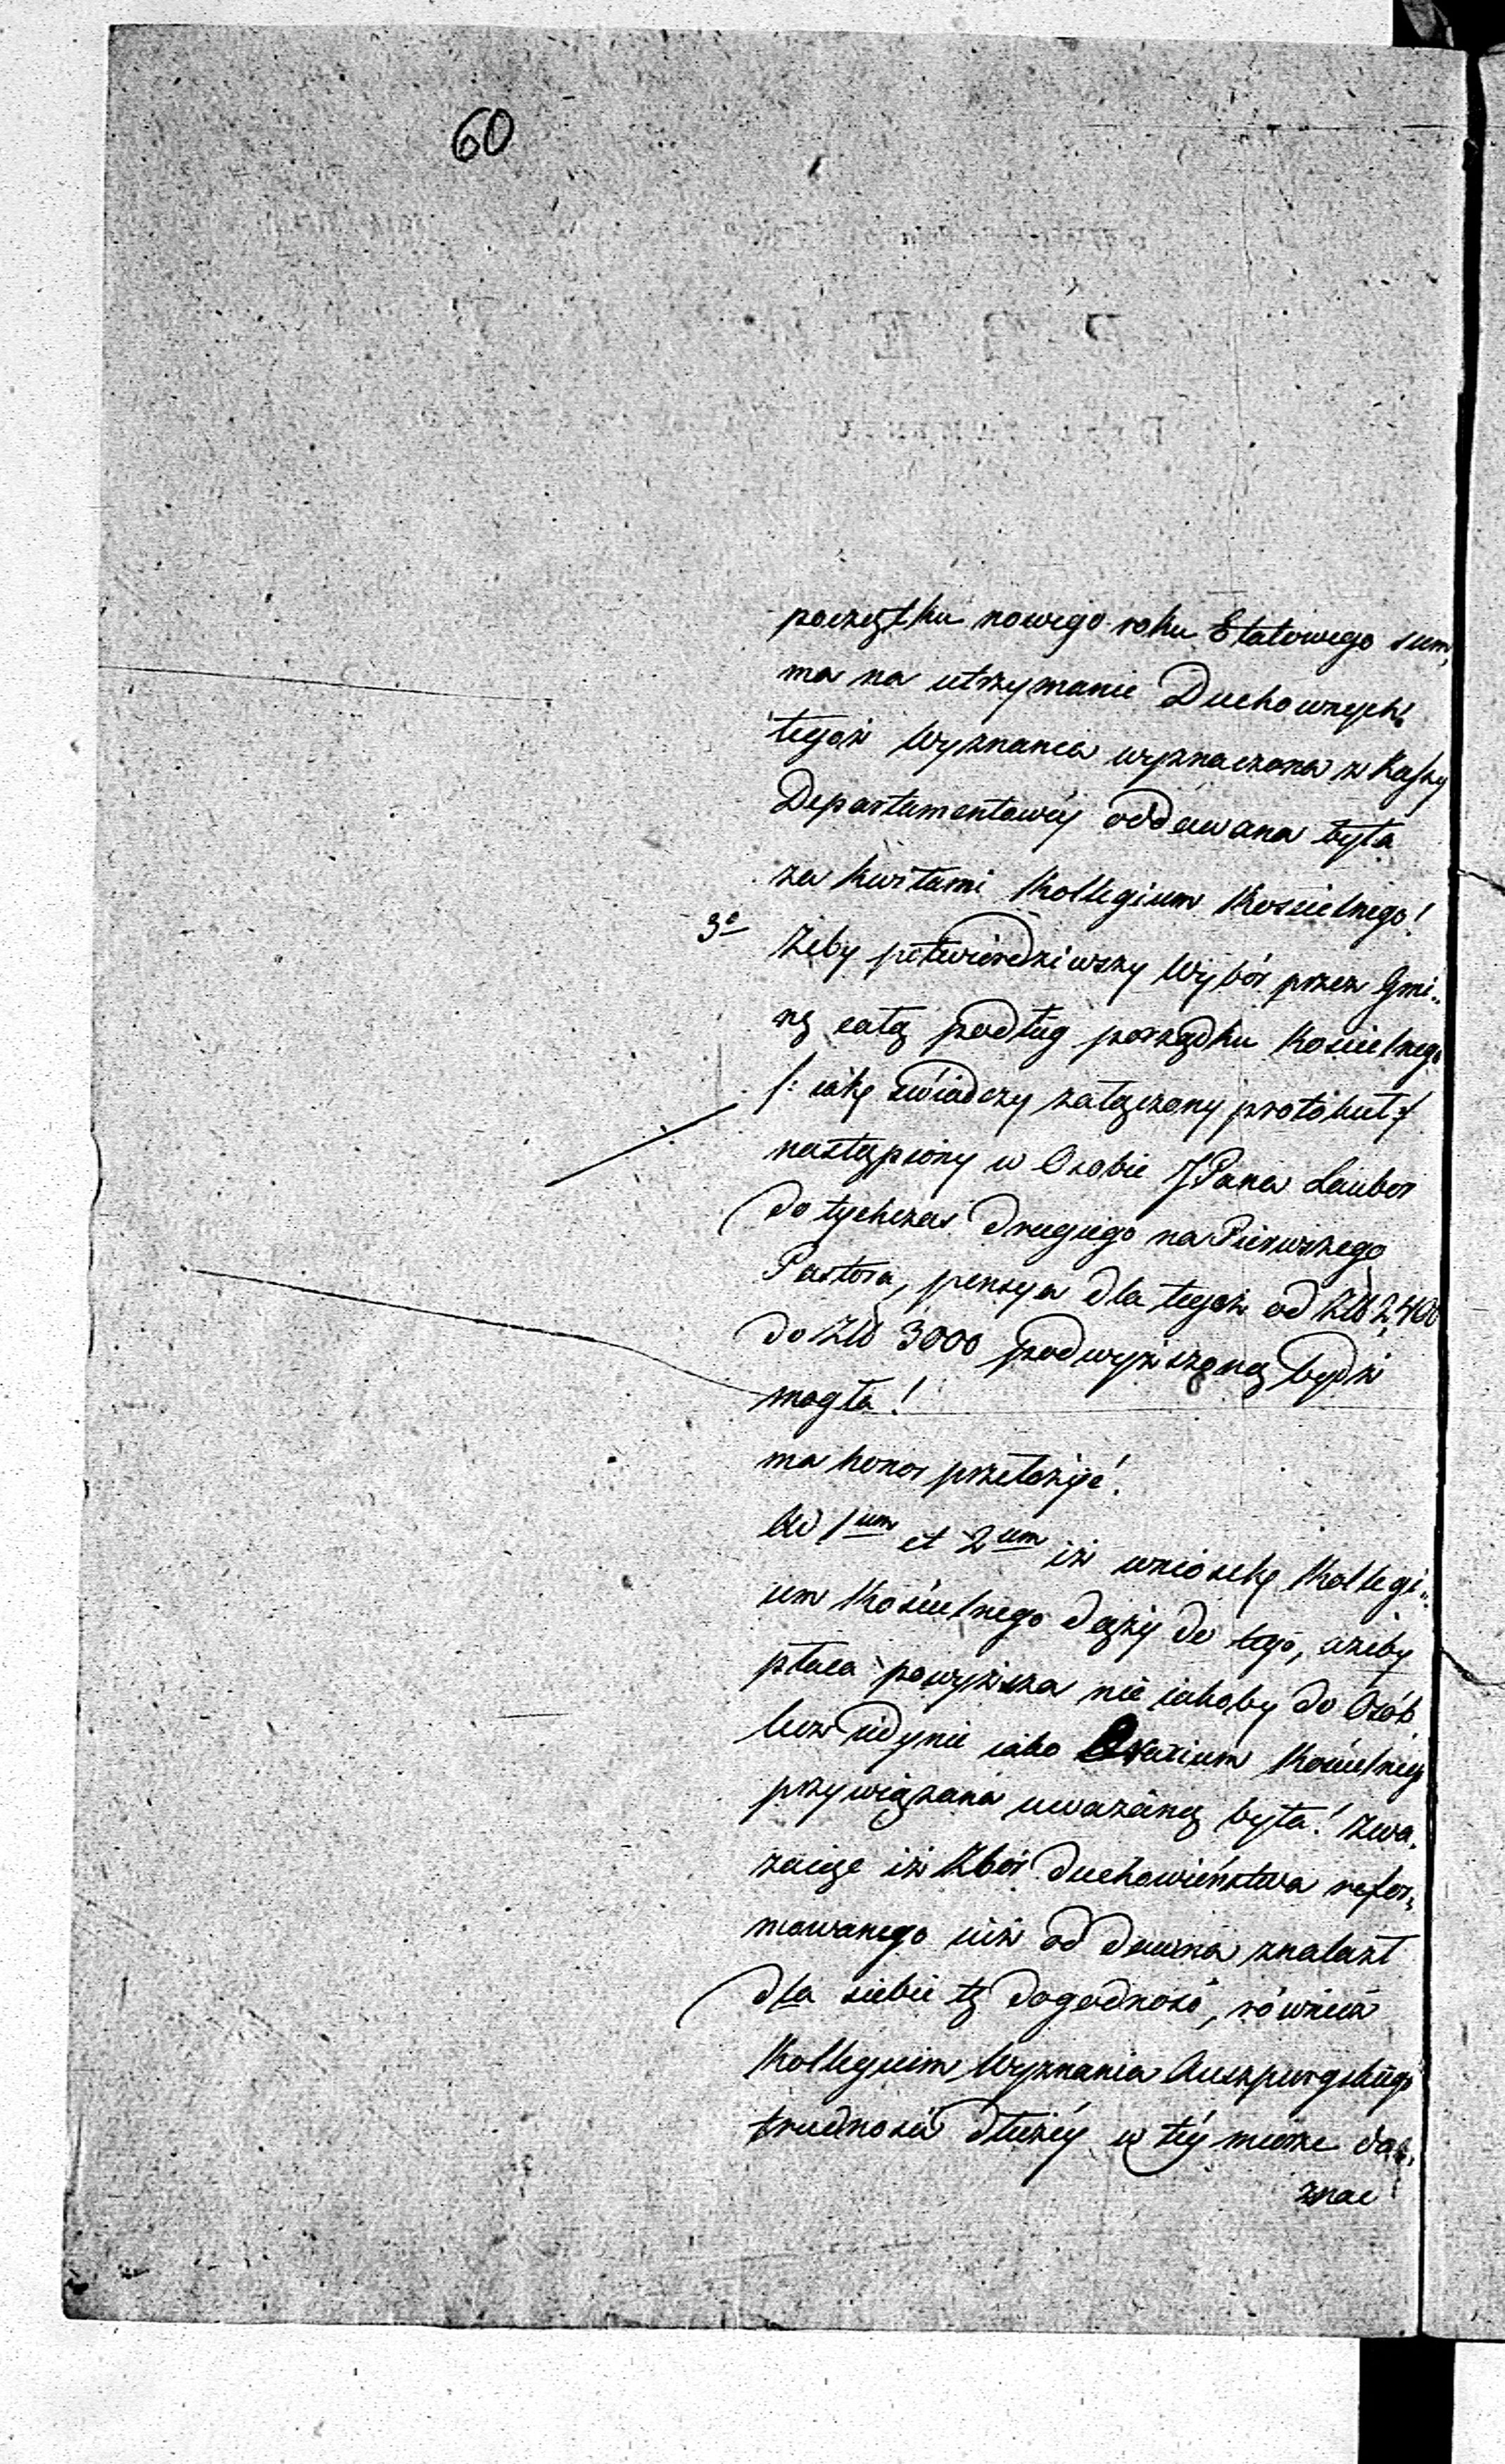 60
początku nowego roku Etatowego sum„
ma na utrzymanie Duchownych
tegoż Wyznania wyznaczona z Kassy
Departamentowéy oddawana była
za kwitami Kollegium Kościelnego!
3o żeby potwierdziwszy Wybór przez Gmi„
nę całą podług porządku Kościelnego
/: iakę świadczy załączony protokuł :/
nastąpiony w Osobie JPana Lauber
dotychczas drugiego na Pierwszego
Pastora, pensya dla tegoż od Złł 2,400
do Złł 3000 podwyższoną bydź
mogła!
ma honor przełożyć!
Ad 1um et 2um iż wnioskę Kollegi„
um Kościelnego dąży do tego, ażeby
płaca powyższa nie iakoby do Osób
lecz iedynie iako Kościelney
przywiązana uważaną była! zwa„
żaiąc iż Zbór duchowieństwa refor„
mowanego iuż od dawna znalazł
dla siebie tę dogodność, również
Kollegium Wyznania Auszpurgskiego
trudności dłużéy w téy mierze do„
znac